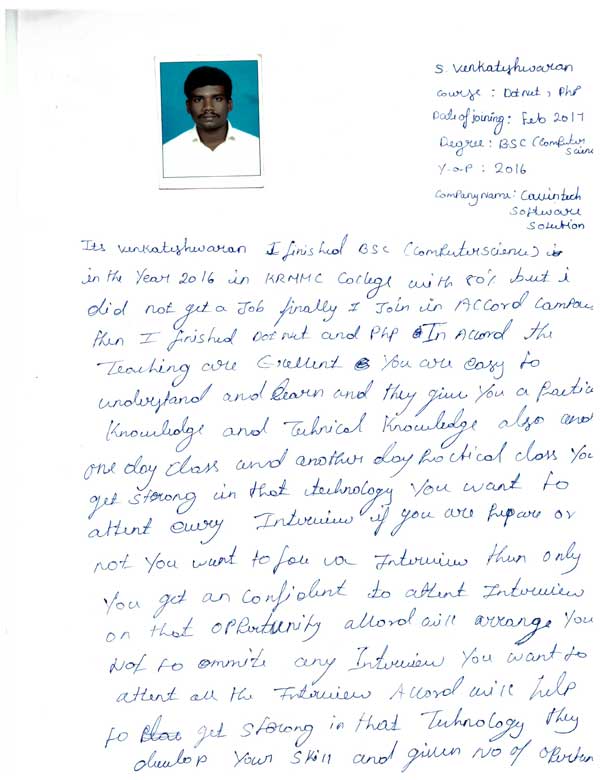 S. Venkateshwaran
Course : Dotnet, Php
Date of joining : Feb 2017
Degree : BSC (Computer
Science
Y.O.P : 2016
Company Name : Cavintech
Software
Solution
Its Venkateshwaran I finished BSC (Computerscience) is
in the Year 2016 in KRMMC College with 80% but i
did not get a Job finally I Join in Accord Campus
then I finished Dot nut and PhP In Accord the
Teaching are Exellent You are easy to
understand and learn and they give You a Practica
Knowledge and Tehnical Knowledge also and
one day class and another day Practical class You
get strong in that technology You want to
attent every Interview if you are Prepare or
not You want to face Interview then only
You get an Confident to attent Interview
on that OPPertunity accord will arrange You
Not to ommite any Interview You want to
attent all the Interview Accord will help
to get strong in that Technology they
develop Your Skill and given No of Opertun